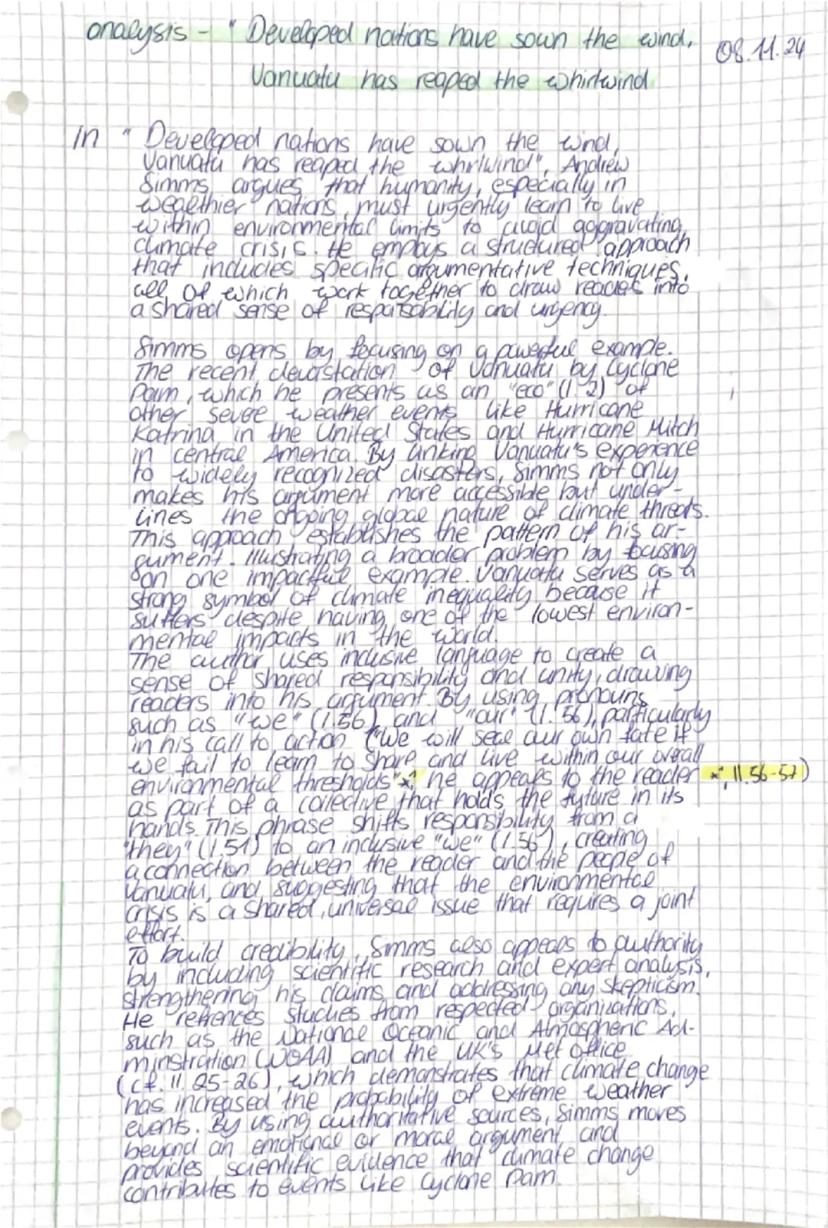 analysis - " Developed nations have sown the wind,
08.11.24
Vanuatu has reaped the whirlwind
In " Developed nations have sown the wind,
Vanuatu has reaped the whrlwind", Andrew
Simms argues that humanity, especially in
wealthier nations, must urgently learn to live
within environmental limits to avoid aggravating
climate crisis. He employs a structured approach
that includes specific argumentative techniques,
all of which work together to draw readers into
a shared sense of responsability and urgency.
Simms opens by focusing on a powerful example.
The recent devastation of Vanuatu by Cyclone
Pam, which he presents as an "eco" (l. 2) of
other severe weather events like Hurricane
Katrina in the United States and Hurricane Mitch
in central America. By linking Vanuatu's experience
to widely recognized disasters, Simms not only
makes his argument more accessible but under-
lines the ongoing global nature of climate threats.
This approach establishes the pattern of his ar-
gument. Illustrating a broader problem by focusing
on one impactful example. Vanuatu serves as a
strong symbol of climate inequality because it
suffers despite having one of the lowest environ-
mental impacts in the world.
The author uses inclusive language to create a
sense of shared responsibility and unity, drawing
readers into his argument. By using pronouns
such as "we" (l.56) and "our" (l. 56), particularly
in his call to action ("We will seal our own fate if
we fail to learn to share and live within our overall
environmental thresholds"*, he appeals to the reader *", ll.56-57)
as part of a collective that holds the future in its
hands. This phrase shifts responsibility from a
"they" (l.51) to an inclusive "we" (l.56), creating
a connection between the reader and the people of
Vanuatu, and suggesting that the environmental
crisis is a shared, universal issue that requires a joint
effort.
To build credibility, Simms also appeals to authority
by including scientific research and expert analysis,
strengthering his claims and addressing any skepticism.
He refrences studies from respected organizations,
such as the National Oceanic and Atmospheric Ad-
minstration (NOAA) and the UK's Met office
(cf. ll. 25-26), which demonstrates that climate change
has increased the probability of extreme weather
events. By using authoritative sources, Simms moves
beyond an emotional or moral argument and
provides scientific evidence that climate change
contributes to events like Cyclone Pam.